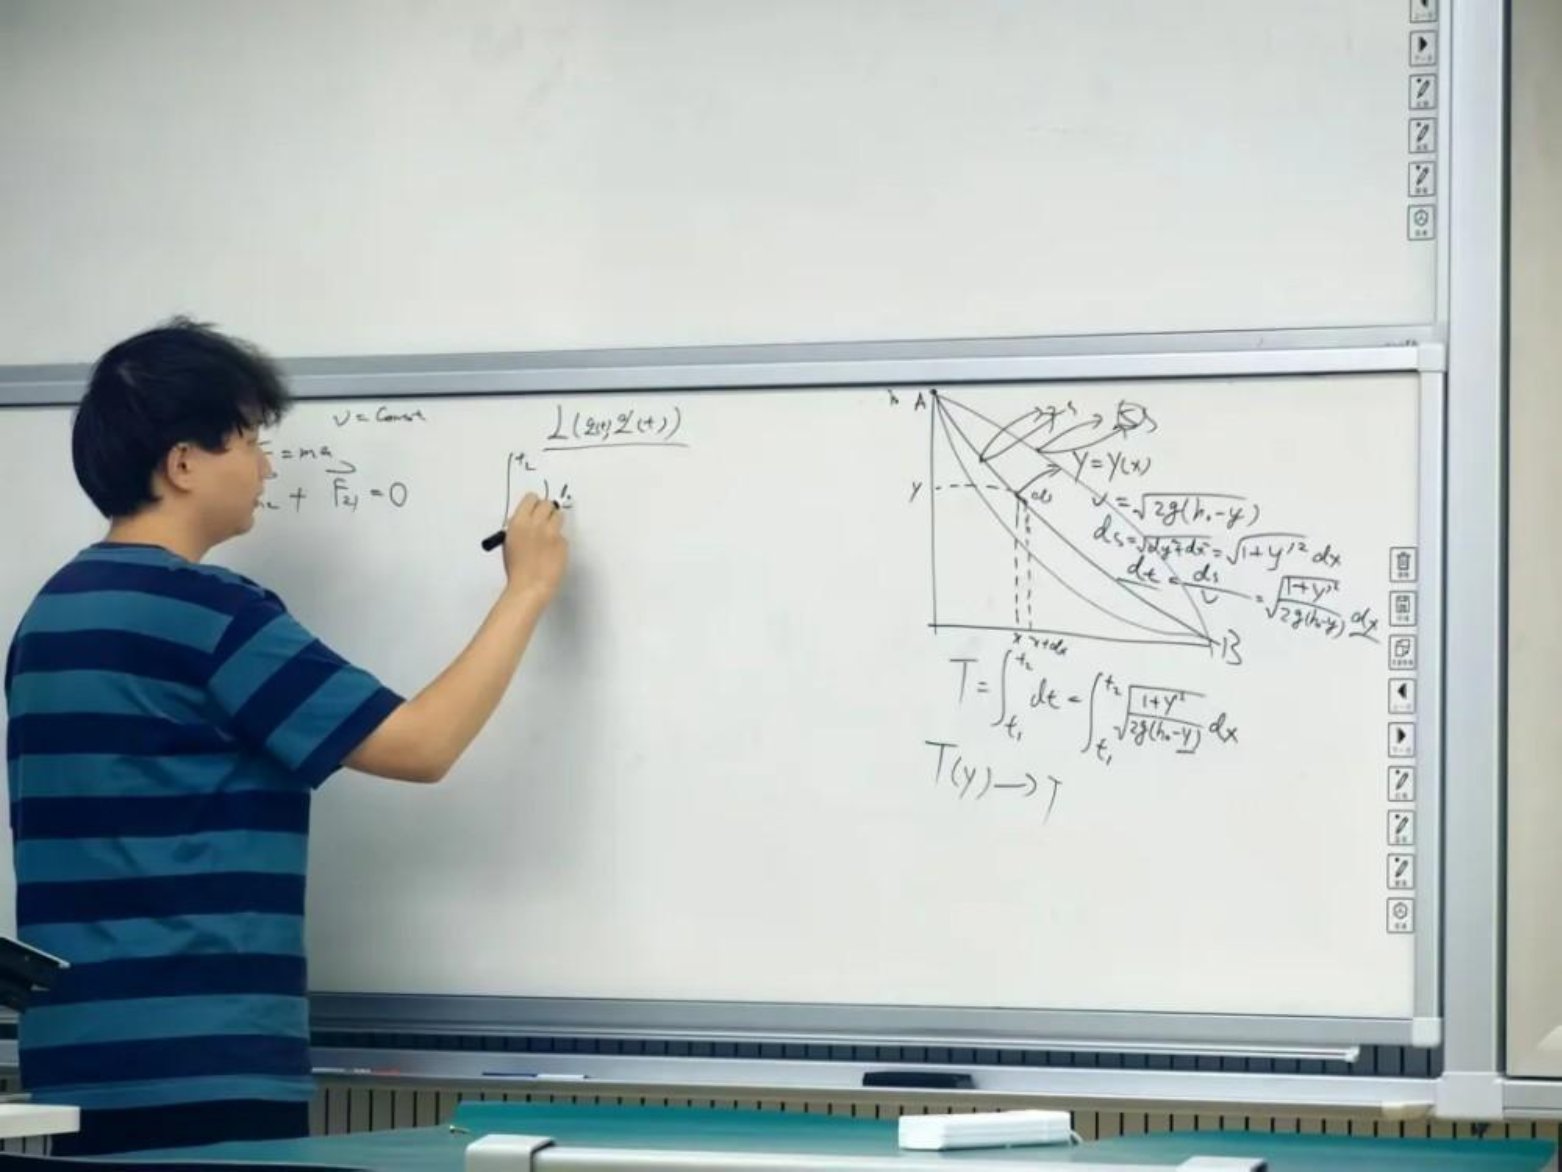 v = Const
= ma
+ F₂₁ = 0
L(q(t), q(t))
∫ t₂
h A
y = y(x)
y
ds
v = √2g(h₀-y)
ds = √dy²+dx² = √1+y'² dx
dt = ds/v = √(1+y'²)/(2g(h₀-y)) dx
x x+dx
B
T = ∫t₁t₂ dt = ∫t₁t₂ √(1+y'²)/(2g(h₀-y)) dx
T(y) → T